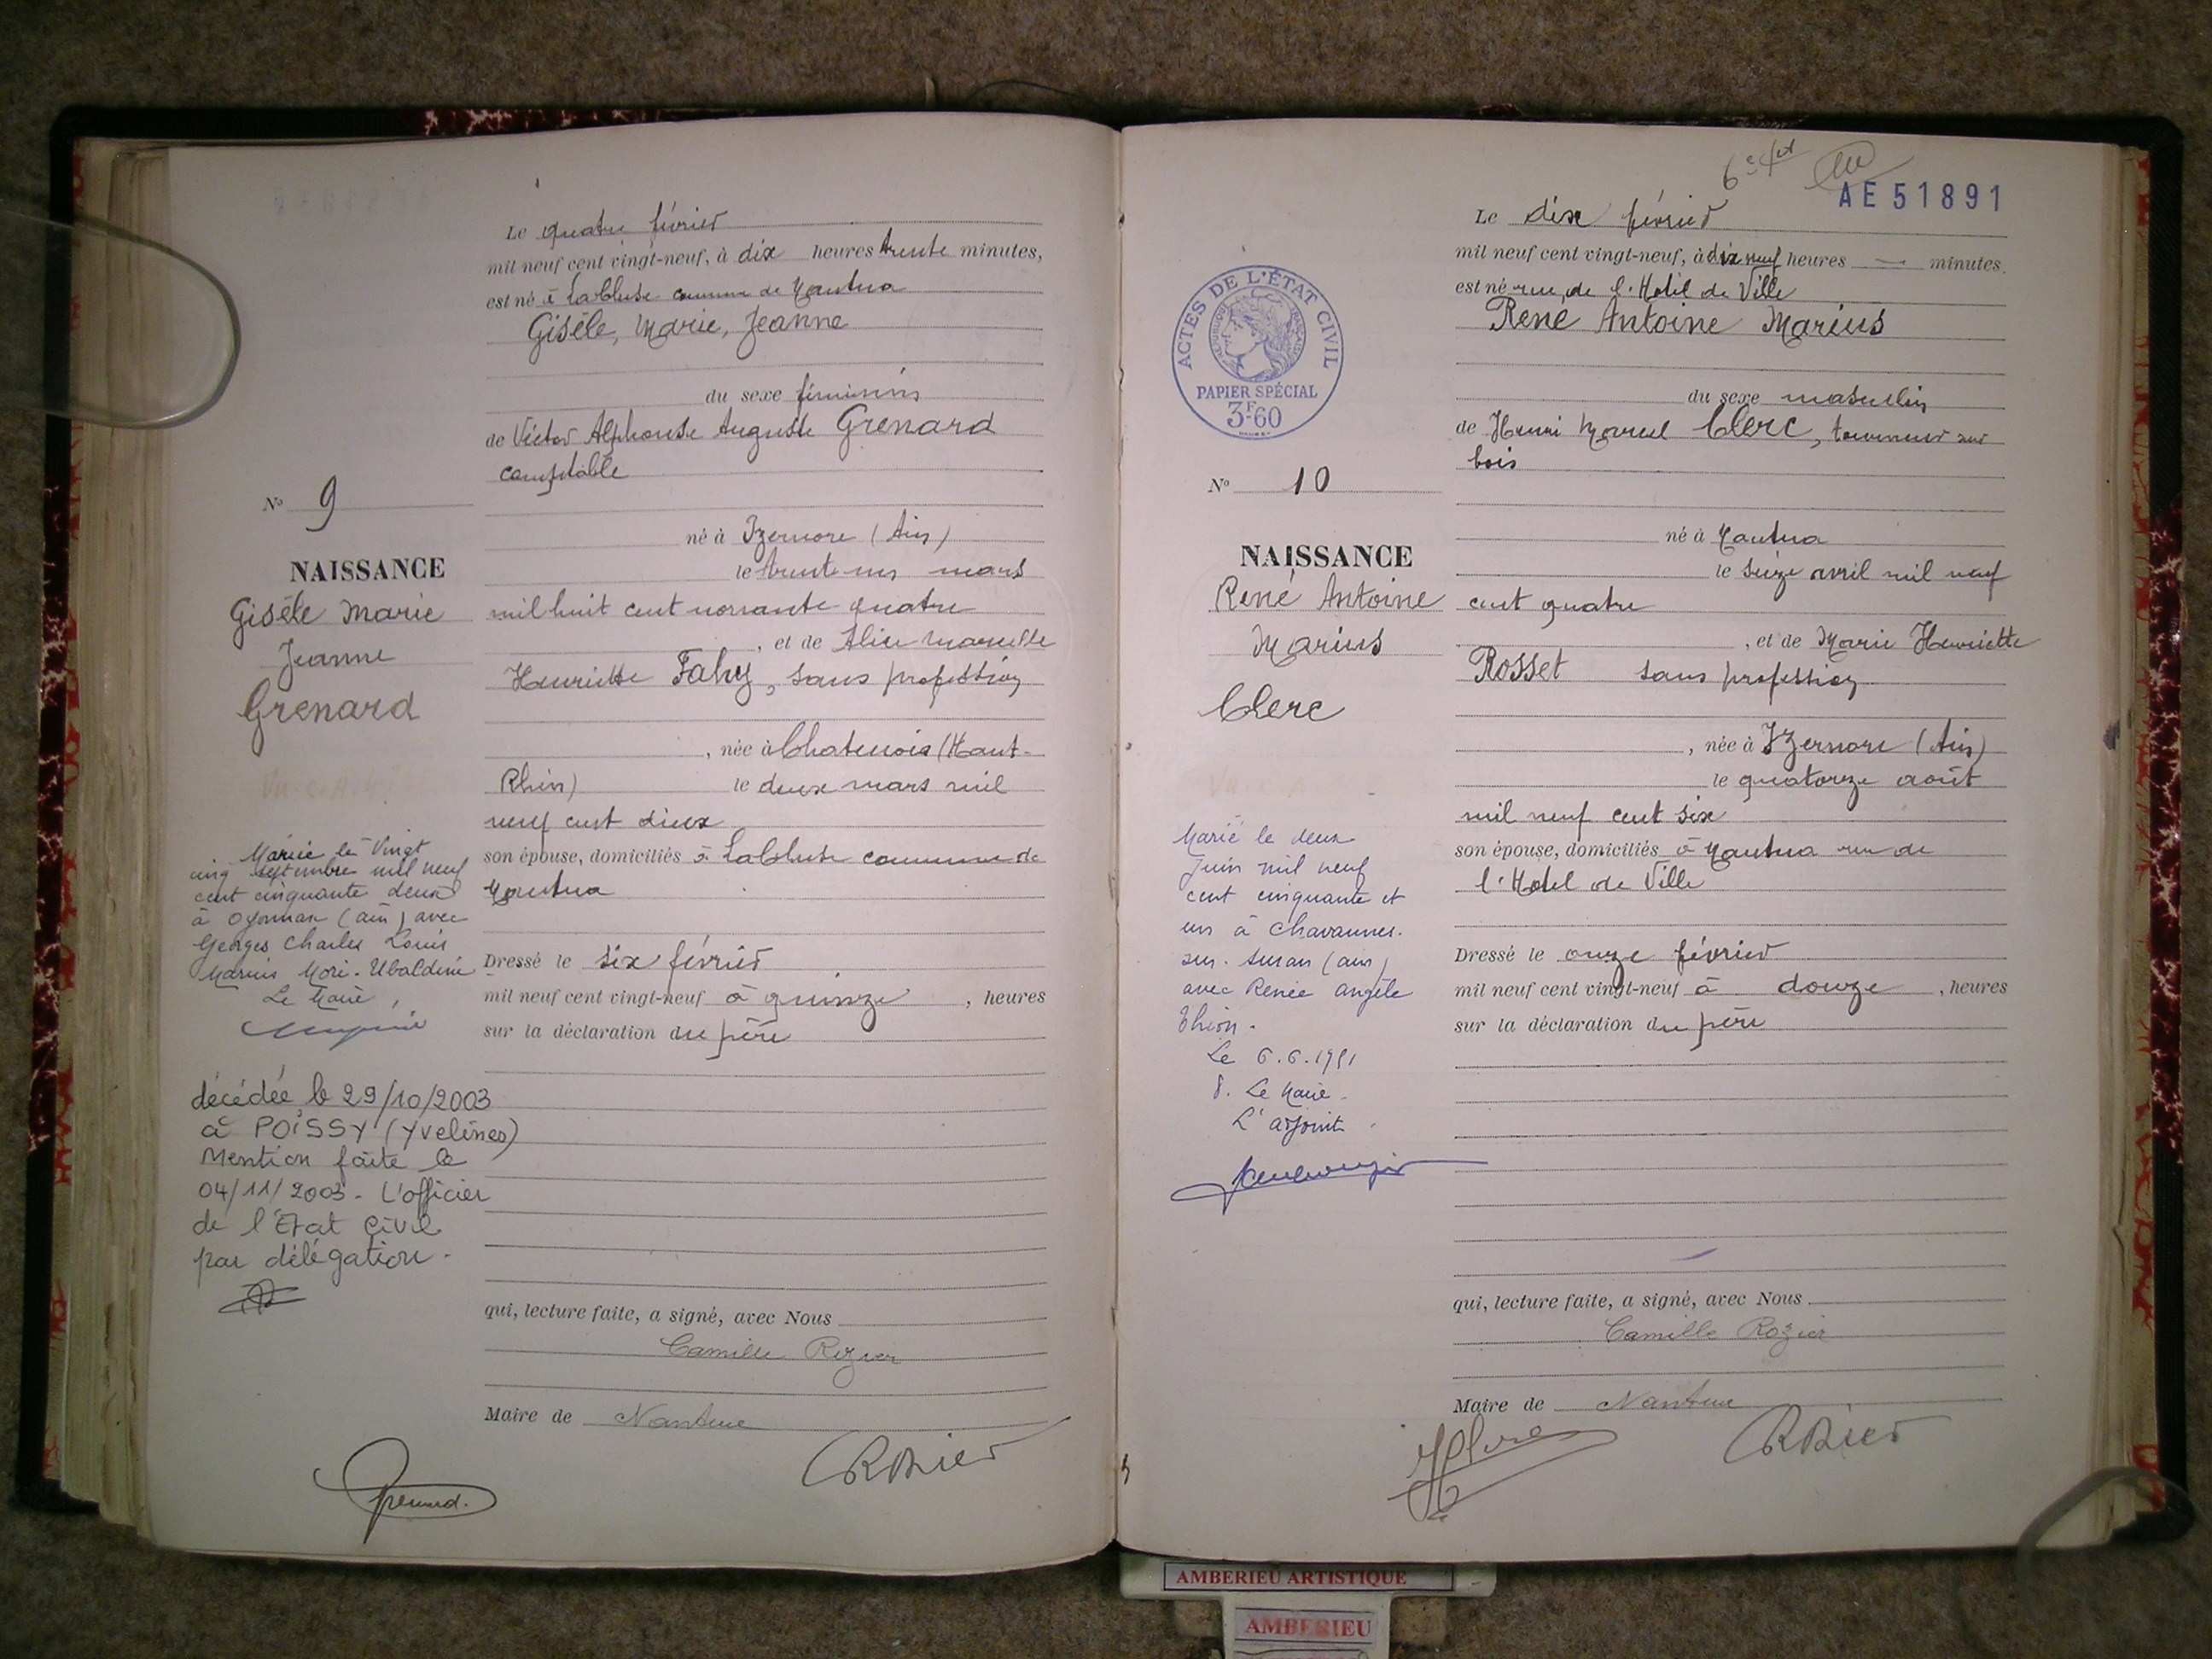 Le quatre février
mil neuf cent vingt-neuf, à dix heures trente minutes,
est né à LaCluse commune de Nantua
Gisèle, Marie, Jeanne
du sexe féminin
de Victor Alphonse Auguste Grenard
comptable
né à Izernore (Ain)
le trente un mars
mil huit cent nonante quatre
, et de Alice Marcelle
Henriette Fahy, sans profession
, née à Chatenois (Haut-
Rhin) le deux mars mil
neuf cent deux
son épouse, domiciliés à LaCluse commune de
Nantua
Dressé le six février
mil neuf cent vingt-neuf à quinze , heures
sur la déclaration du père
qui, lecture faite, a signé, avec Nous
Camille Rozier
Maire de Nantua
Grenard.
CRozier
No 9
NAISSANCE
Gisèle Marie
Jeanne
Grenard
Mariée le Vingt
cinq septembre mil neuf
cent cinquante deux
à Oyonnax (ain) avec
Georges Charles Louis
Marius Mori-Ubaldini
Le Maire,
décédée le 29/10/2003
à POISSY (Yvelines)
Mention faite le
04/11/2003 - L'officier
de l'Etat Civil
par délégation.
AE 51891
Le dix février
mil neuf cent vingt-neuf, à dix neuf heures — minutes,
est né rue de l'Hotel de Ville
René Antoine Marius
du sexe masculin
de Henri Marcel Clerc, tourneur sur
bois
né à Nantua
le seize avril mil neuf
cent quatre
, et de Marie Henriette
Rosset sans profession
, née à Izernore (Ain)
le quatorze août
mil neuf cent six
son épouse, domiciliés à Nantua rue de
l'Hotel de Ville
Dressé le onze février
mil neuf cent vingt-neuf à douze , heures
sur la déclaration du père
qui, lecture faite, a signé, avec Nous
Camille Rozier
Maire de Nantua
HClerc
CRozier
ACTES DE L'ÉTAT CIVIL
RÉPUBLIQUE FRANÇAISE
PAPIER SPÉCIAL
3F60
No 10
NAISSANCE
René Antoine
Marius
Clerc
Marié le deux
Juin mil neuf
cent cinquante et
un à Chavannes-
sur-Suran (ain)
avec Renée Angèle
Thion.
Le 6.6.1951
P. Le Maire
L'adjoint
AMBERIEU ARTISTIQUE
AMBERIEU